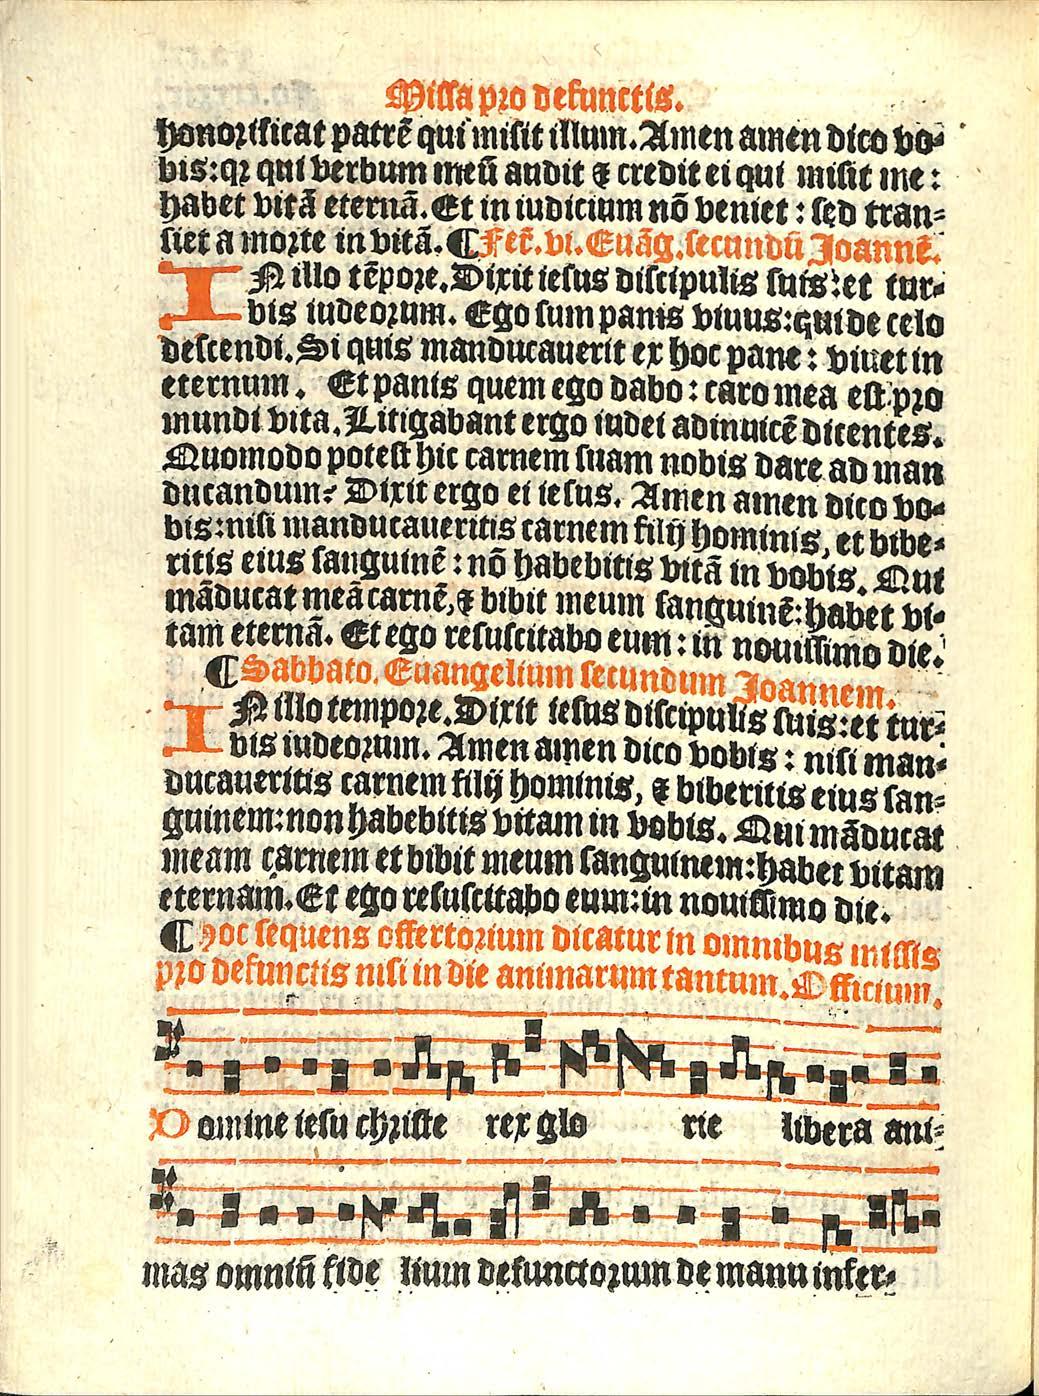 Missa pro defunctis.
honorificat patrē qui misit illum. Amen amen dico vo-
bis: qꝛ qui verbum meū audit ⁊ credit ei qui misit me:
habet vitā eternā. Et in iudicium nō veniet: sed tran-
siet a morte in vitā. ¶ Fer̄. vi. Euāg. secundū Joannē.
IN illo tēpore. Dixit iesus discipulis suis: et tur-
bis iudeorum. Ego sum panis viuus: qui de celo
descendi. Si quis manducauerit ex hoc pane: viuet in
eternum. Et panis quem ego dabo: caro mea est pro
mundi vita. Litigabant ergo iudei adinuicē dicentes.
Quomodo potest hic carnem suam nobis dare ad man
ducandum? Dixit ergo ei iesus. Amen amen dico vo-
bis: nisi manducaueritis carnem filij hominis, et bibe-
ritis eius sanguinē: nō habebitis vitā in vobis. Qui
māducat meā carnē, ⁊ bibit meum sanguinē: habet vi-
tam eternā. Et ego resuscitabo eum: in nouissimo die.
¶ Sabbato. Euangelium secundum Joannem.
IN illo tempore. Dixit iesus discipulis suis: et tur-
bis iudeorum. Amen amen dico vobis: nisi man-
ducaueritis carnem filij hominis, ⁊ biberitis eius san-
guinem: non habebitis vitam in vobis. Qui māducat
meam carnem et bibit meum sanguinem: habet vitam
eternam. Et ego resuscitabo eum: in nouissimo die.
¶ Hoc sequens offertorium dicatur in omnibus missis
pro defunctis nisi in die animarum tantum. Officium.
Domine iesu christe rex glo rie libera ani-
mas omniū fide lium defunctorum de manu infer-